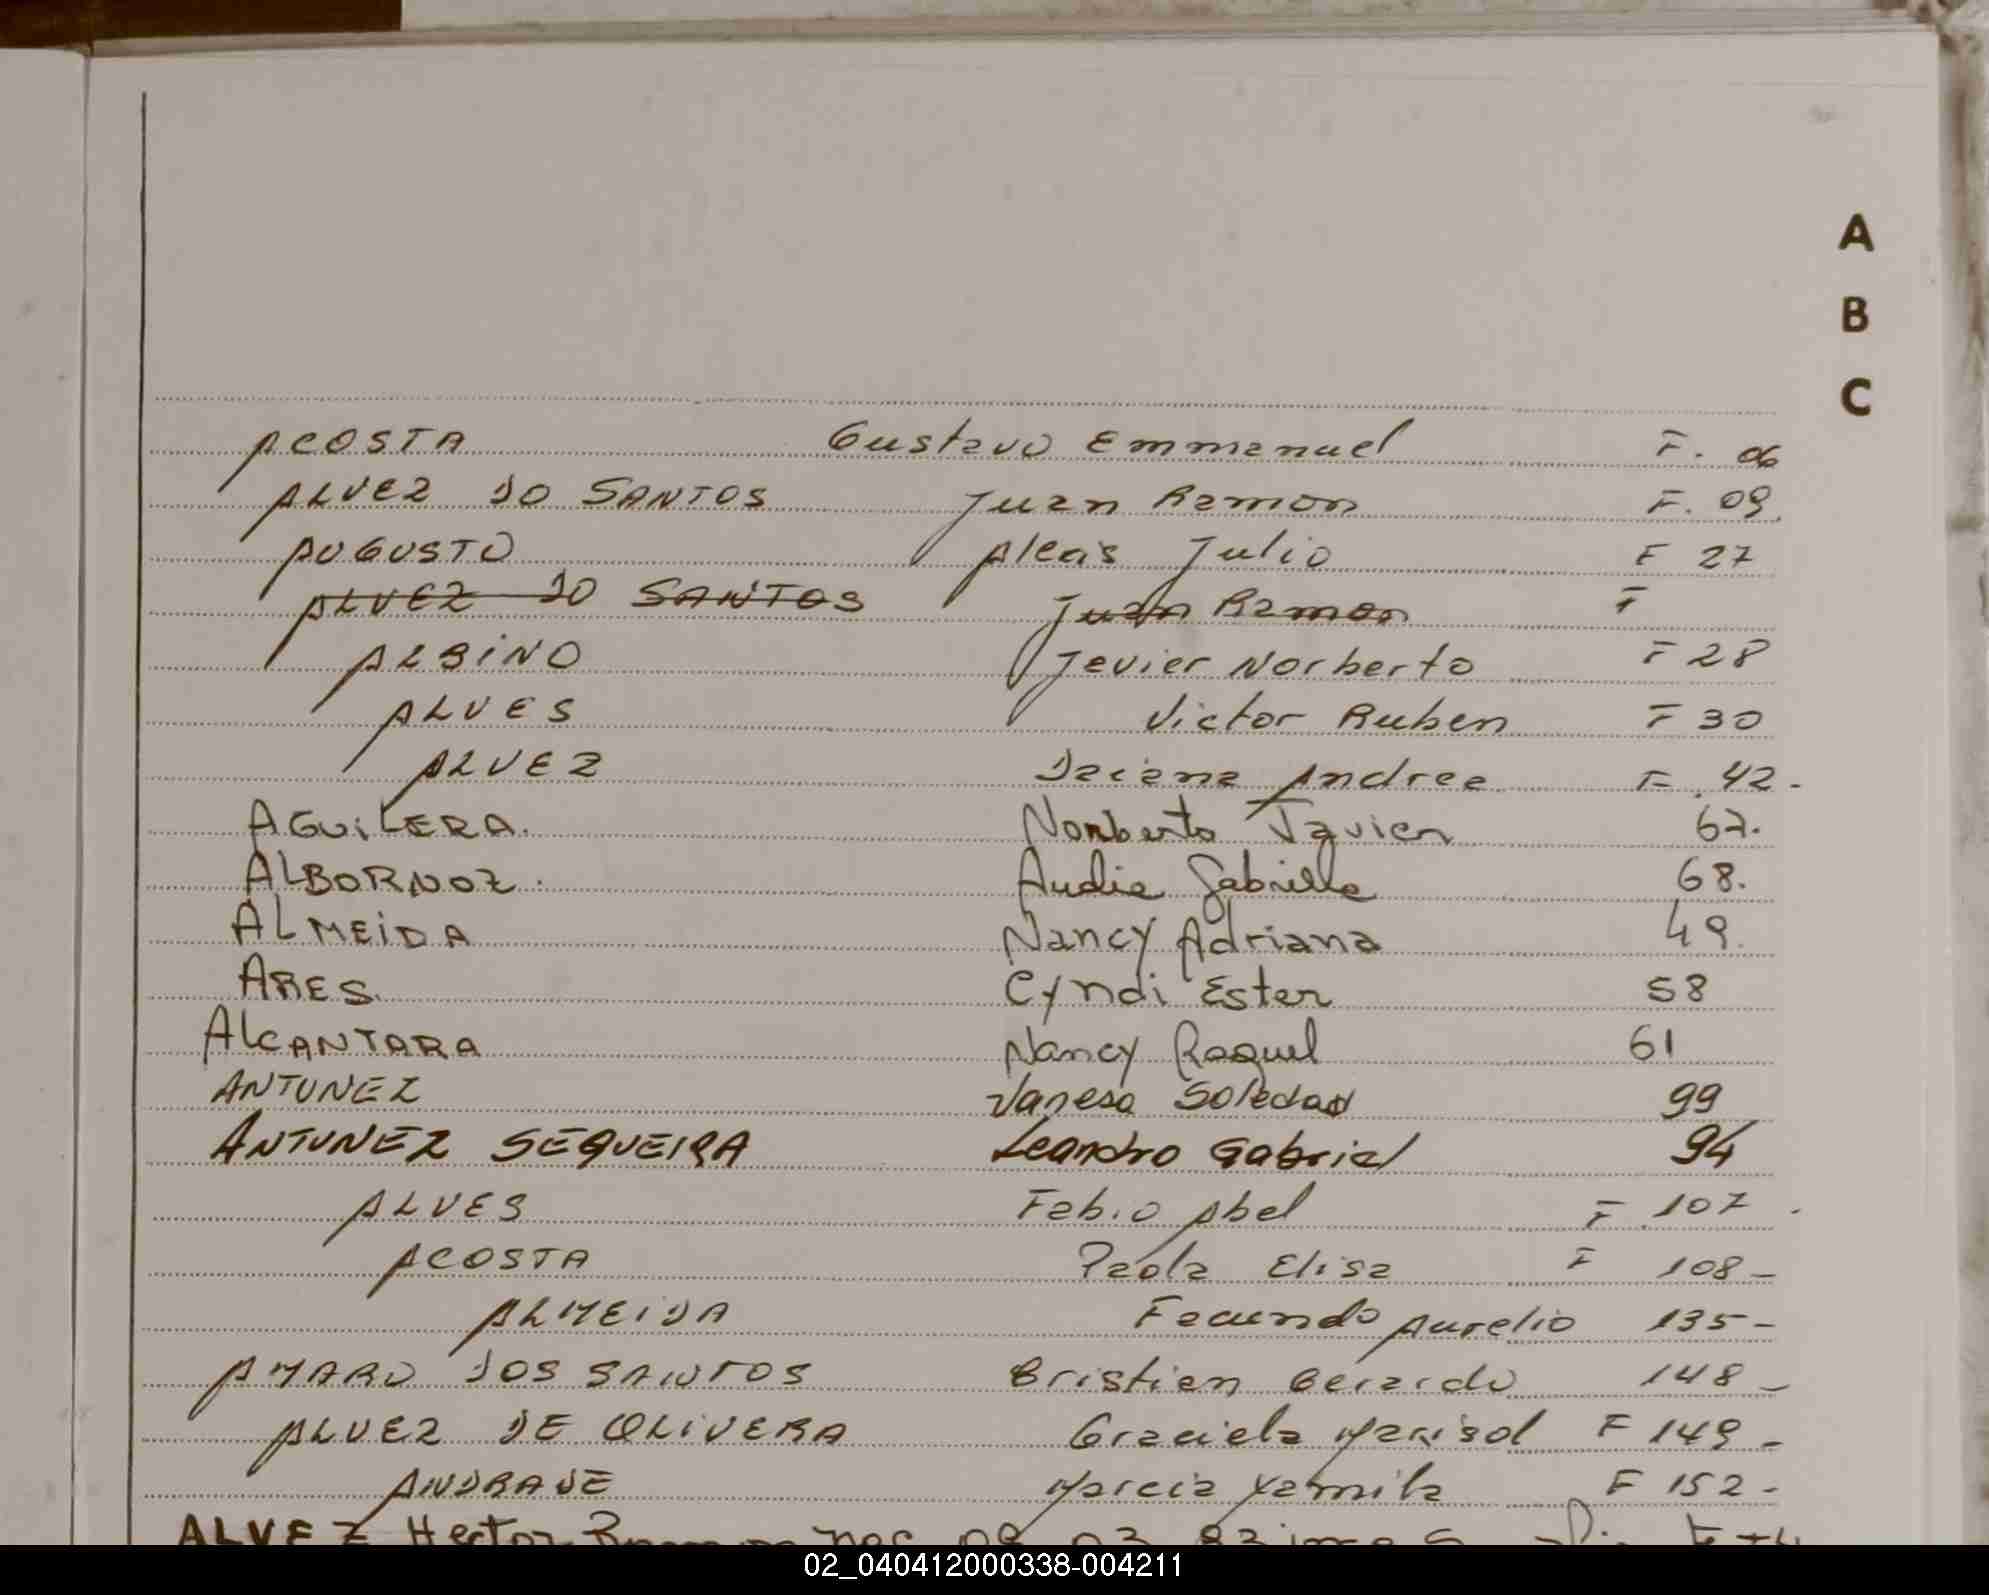 A
B
C
ACOSTA Gustavo Emmanuel F. 06
ALVEZ DO SANTOS Juan Ramon F. 09
AUGUSTO Alcais Julio F 27
ALVEZ DO SANTOS Juan Ramon F
ALBINO Javier Norberto F 28
ALVES Victor Ruben F 30
ALVEZ Daiana Andrea F. 42.
AGUILERA. Norberto Javier 67.
ALBORNOZ. Audia Gabriella 68.
ALMEIDA Nancy Adriana 49.
ARES. Cyndi Ester 58
ALCANTARA Nancy Raquel 61
ANTUNEZ Vanesa Soledad 99
ANTUNEZ SEQUEIRA Leandro Gabriel 94
ALVES Fabio Abel F 107.
ACOSTA Paola Elisa F 108-
ALMEIDA Facundo Aurelio 135-
AMARO DOS SANTOS Cristian Gerardo 148-
ALVEZ DE OLIVERA Graciela Marisol F 149-
ANDRADE Marcia Yamila F 152-
ALVEZ Hector Ramon
02_040412000338-004211